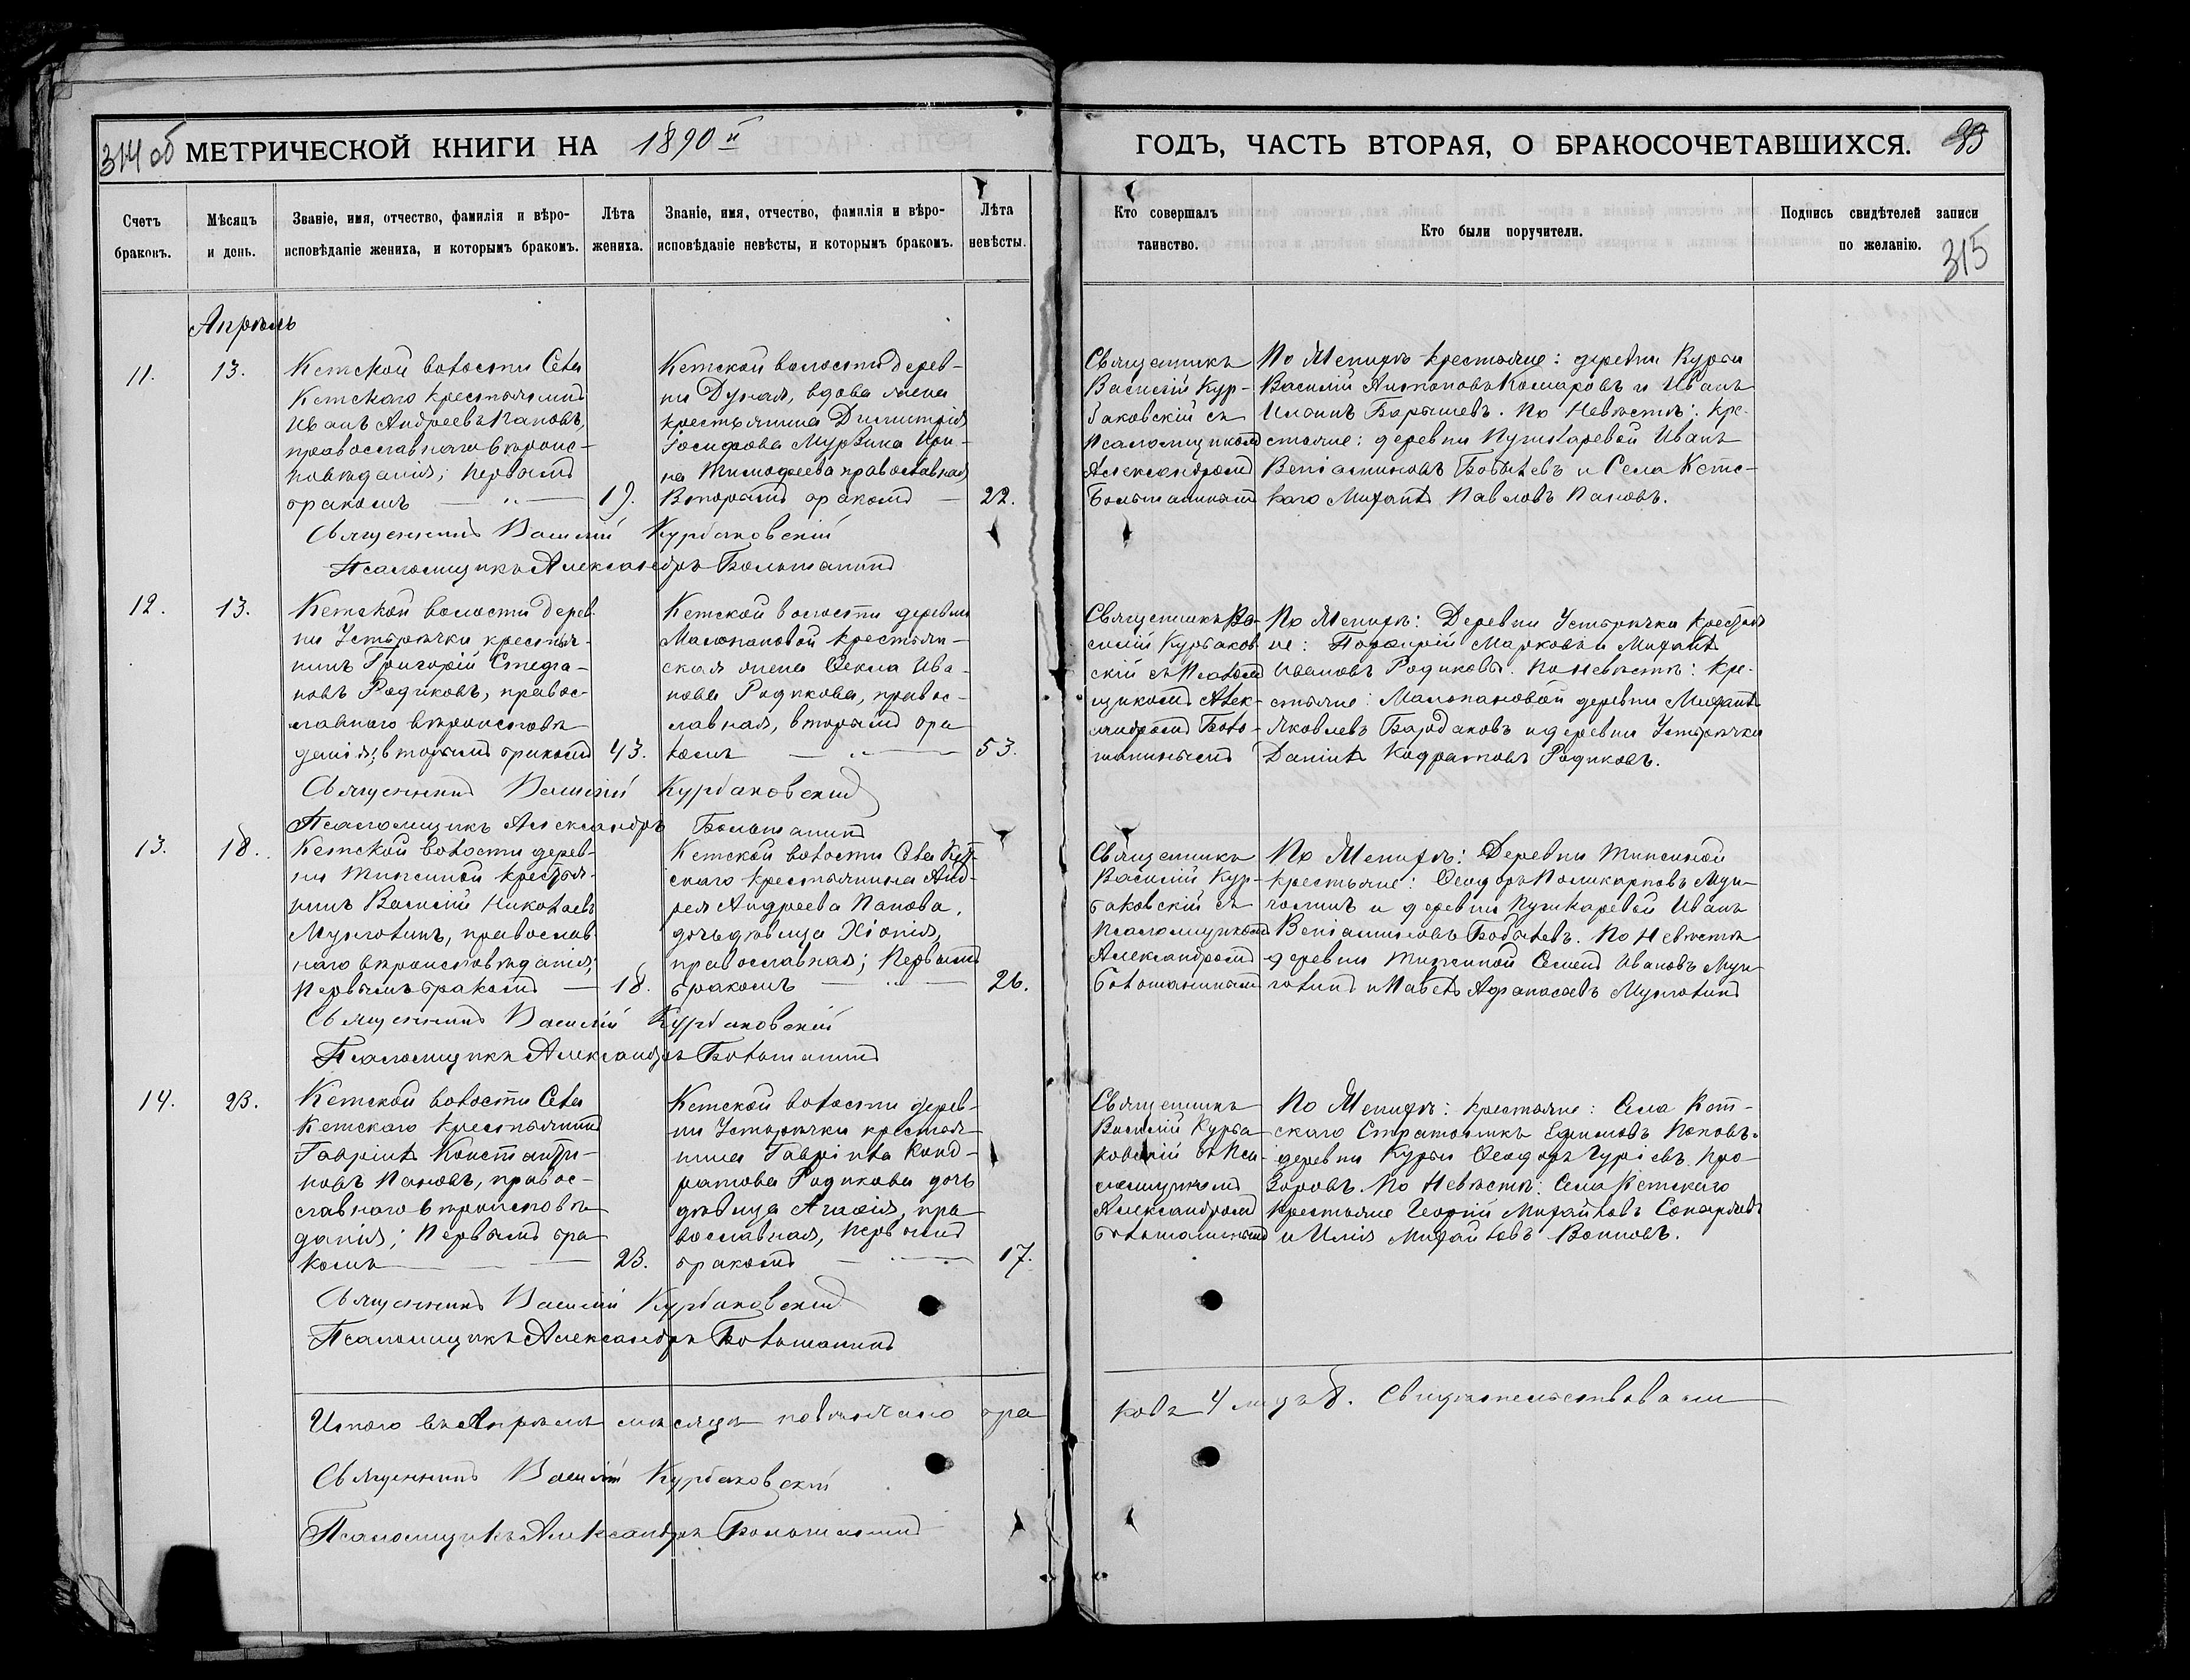 314 об МЕТРИЧЕСКОЙ КНИГИ НА 1890 й
ГОДЪ, ЧАСТЬ ВТОРАЯ, О БРАКОСОЧЕТАВШИХСЯ.
315
Счетъ браковъ.
Мѣсяцъ и день.
Званіе, имя, отчество, фамилія и вѣро-
исповѣданіе жениха, и которымъ бракомъ.
Лѣта жениха.
Званіе, имя, отчество, фамилія и вѣро-
исповѣданіе невѣсты, и которымъ бракомъ.
Лѣта невѣсты.
Кто совершалъ
таинство.
Кто были поручители.
Подпись свидѣтелей записи
по желанію.
Апрѣль
11.
13.
Кетской волости Села
Кетскаго крестьянинъ
Иванъ Андреевъ Пановъ,
православнаго вѣроис-
повѣданія; первымъ
бракомъ
19.
Кетской волости дерев-
ни Дуная, вдова жена
крестьянина Димитрія
Іосифова Мурзина Ири-
на Тимофеева православная
Вторымъ бракомъ
22.
Священникъ
Василій Кур-
баковскій съ
Псаломщикомъ
Александромъ
Большанинымъ
По Женихѣ крестьяне: деревни Курьи
Василій Антоновъ Комаровъ и Иванъ
Барышевъ. По Невѣстѣ: кре-
стьяне: деревни Пушкаревой Иванъ
Веніаминовъ Бобылевъ и Села Кетс-
каго Михаилъ Павловъ Пановъ.
Священникъ Василій Курбаковскій
Псаломщикъ Александръ Большанинъ
12.
13.
Кетской волости дерев-
ни Устьрѣчки крестья-
нинъ Григорій Стефа-
новъ Родиковъ, правос-
лавнаго вѣроисповѣ-
данія; вторымъ бракомъ
43.
Кетской волости деревни
Малопановой крестьян-
ская жена Ѳекла Ива-
нова Родикова, правос-
лавная, вторымъ бра
комъ
53.
Священникъ Ва-
силій Курбаков
скій съ Псалом
щикомъ Алек-
сандромъ Боло-
шанинымъ
По Женихѣ: Деревни Устьрѣчки Крестья
не: Порфирій Марковъ и Михаилъ
Ивановъ Родиковы. По Невѣстѣ: Кре-
стьяне: Малопановой деревни Михаилъ
Яковлевъ Бардаковъ и деревни Устьрѣчки
Даніилъ Кодратовъ Родиковъ.
Священникъ Василій Курбаковскій
Псаломщикъ Александръ Большанинъ
13.
18.
Кетской волости дерев-
ни Типсиной крестья-
нинъ Василій Николаевъ
Мунголинъ, православ-
наго вѣроисповѣданія;
Первымъ бракомъ
18.
Кетской волости Села Кет-
скаго крестьянина Анд-
рея Андреева Панова,
дочь дѣвица Хіонія,
православная; Первымъ
бракомъ
26.
Священникъ
Василій Кур-
баковскій съ
Псаломщикомъ
Александромъ
Болошанинымъ
По Женихѣ: Деревни Типсиной
крестьяне: Ѳеодоръ Поликарповъ Мун-
голинъ и деревни Пушкаревой Иванъ
Веніаминовъ Бобылевъ. По Невѣстѣ
деревни Типсиной Семенъ Ивановъ Мун-
голинъ и Павелъ Афанасьевъ Мунголинъ
Священникъ Василій Курбаковскій
Псаломщикъ Александръ Болошанинъ
14.
23.
Кетской волости Села
Кетскаго крестьянинъ
Гавріилъ Константи-
новъ Пановъ, правос-
лавнаго вѣроисповѣ-
данія; Первымъ бра
комъ
23.
Кетской волости дерев-
ни Устьрѣчки крестья-
нина Гавріила Конд-
ратова Родикова дочь
дѣвица Агафія, пра
вославная, первымъ
бракомъ
17.
Священникъ
Василій Курба
ковскій съ Пса
ломщикомъ
Александромъ
Болошанинымъ
По Женихѣ: крестьяне: Села Кет-
скаго Стратоникъ Ефимовъ Пановъ
деревни Курьи Ѳеодоръ Гуріевъ Про-
зоровъ. По Невѣстѣ: Села Кетскаго
крестьяне Георгій Михайловъ
и Илія Михайловъ Воиновъ.
Священникъ Василій Курбаковскій
Псаломщикъ Александръ Болошанинъ
Итого въ Апрѣлѣ мѣсяцѣ повѣнчано бра
ковъ 4 лицъ 8. Свидѣтельствовали
Священникъ Василій Курбаковскій
Псаломщикъ Александръ Большанинъ